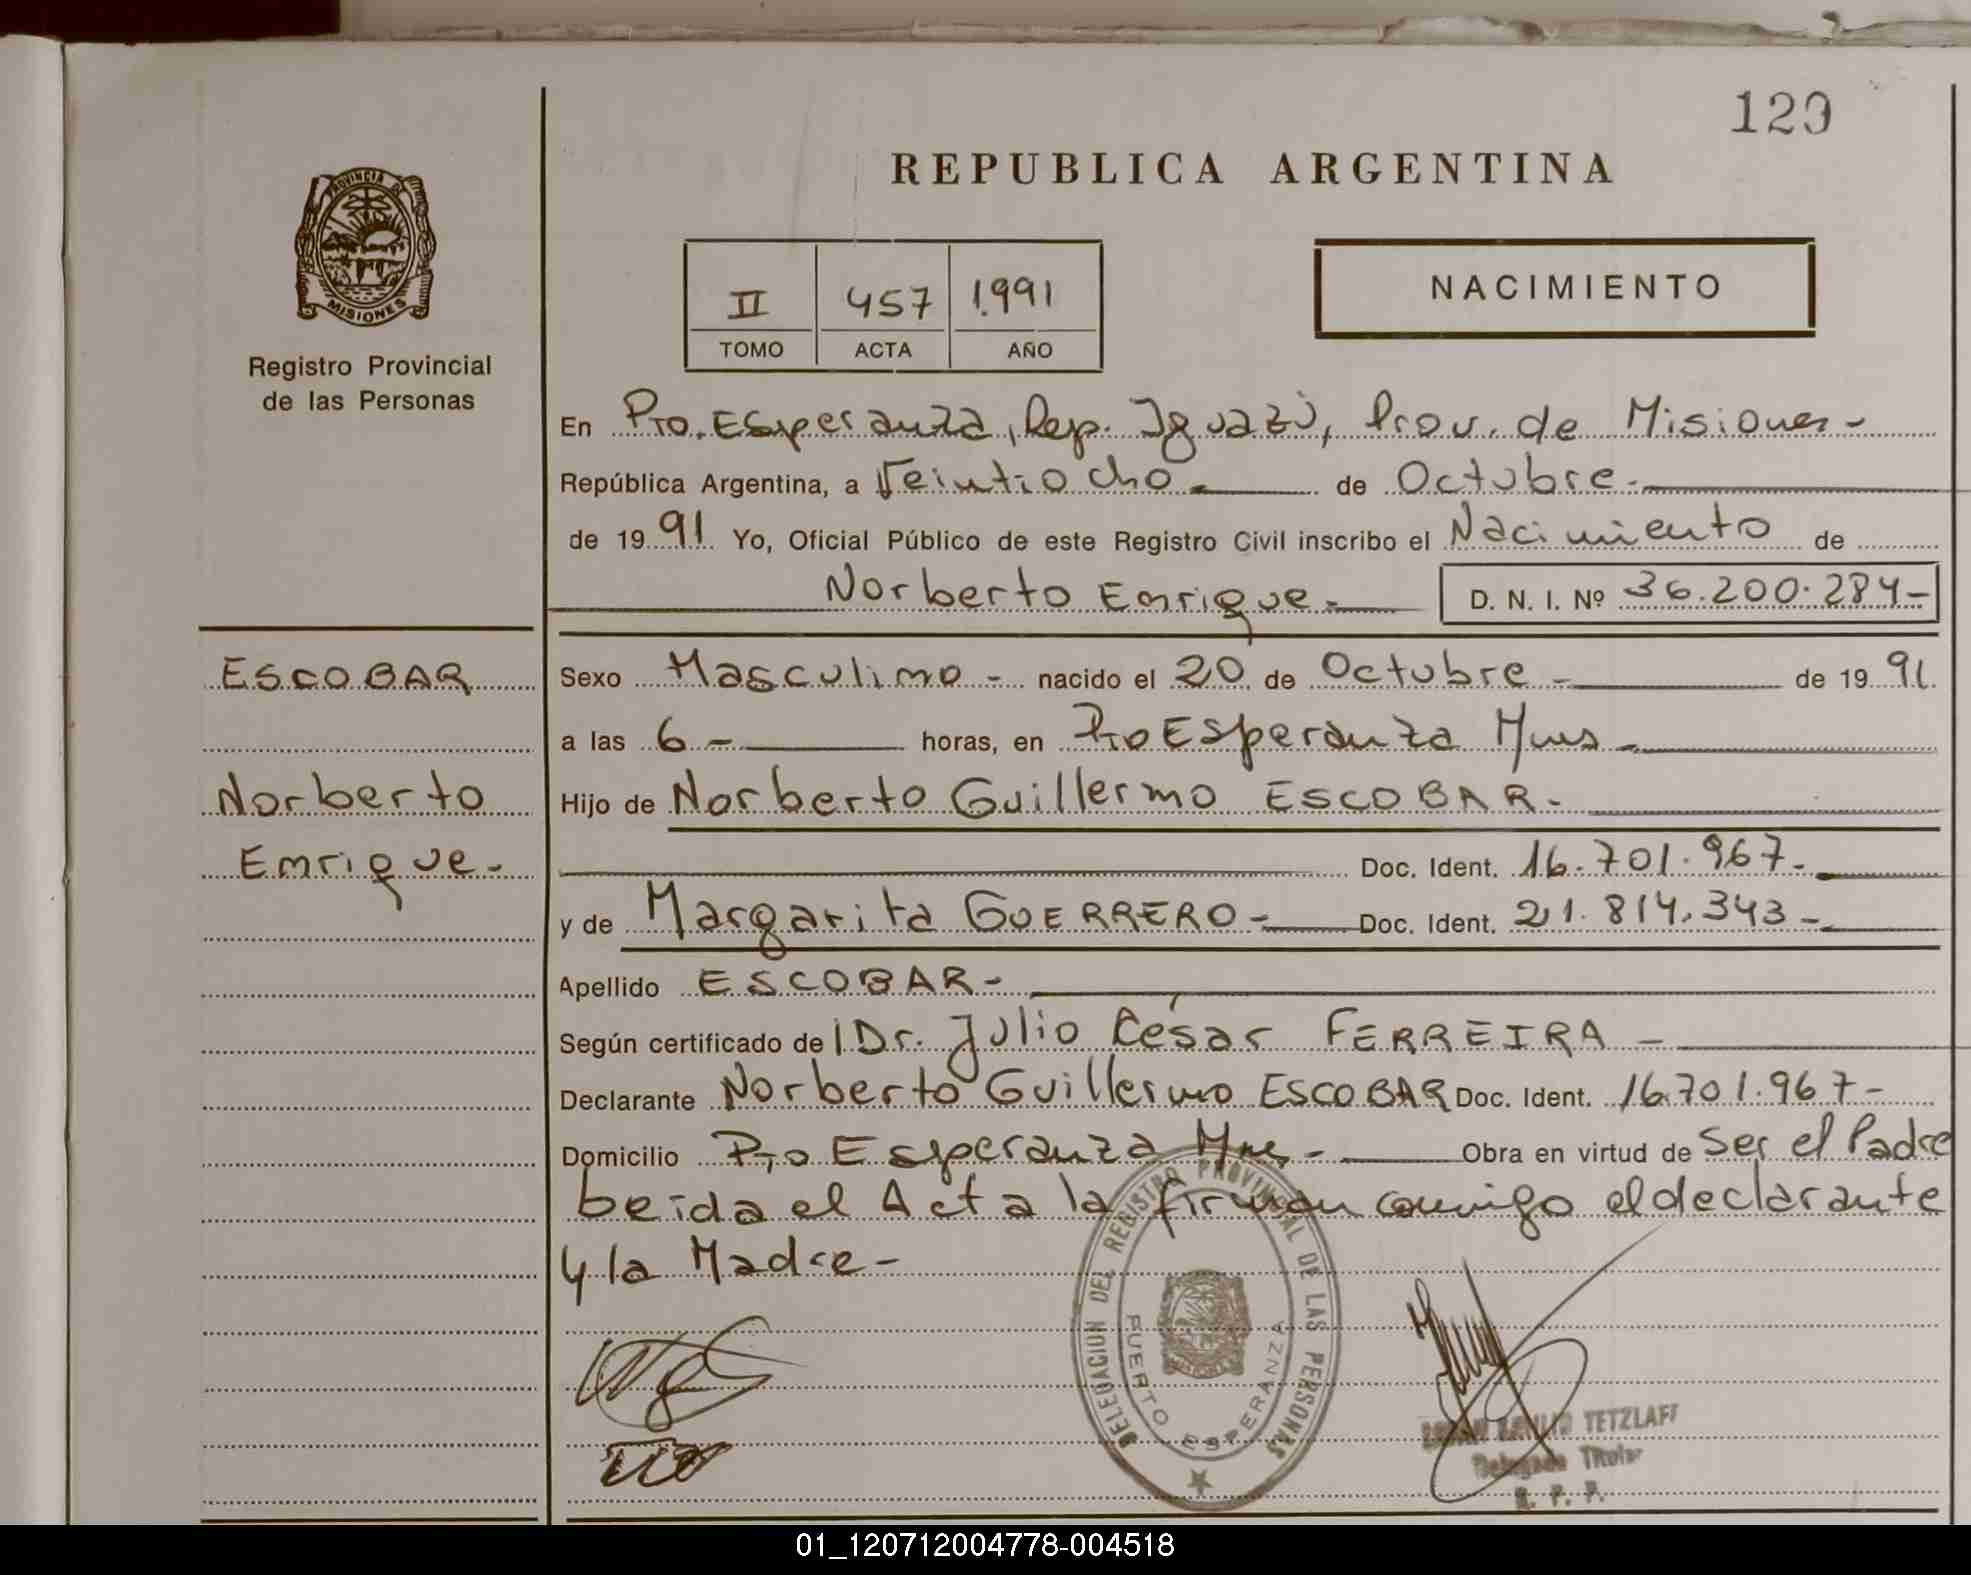 129
REPUBLICA ARGENTINA
PROVINCIA DE
MISIONES
Registro Provincial
de las Personas
II 457 1.991
TOMO ACTA AÑO
NACIMIENTO
En Pto. Esperanza, Dep. Iguazú, Prov. de Misiones -
República Argentina, a Veintiocho - de Octubre -
de 1991 Yo, Oficial Público de este Registro Civil inscribo el Nacimiento de
Norberto Enrique - D. N. I. Nº 36.200.284-
ESCOBAR
Norberto
Enrique -
Sexo Masculino - nacido el 20 de Octubre - de 1991.
a las 6 - horas, en Pto Esperanza Mnes -
Hijo de Norberto Guillermo ESCOBAR -
Doc. Ident. 16.701.967-
y de Margarita GUERRERO - Doc. Ident. 21.814.343 -
Apellido ESCOBAR -
Según certificado de Dr. Julio César FERREIRA -
Declarante Norberto Guillermo ESCOBAR Doc. Ident. 16.701.967-
Domicilio Pto Esperanza Mnes - Obra en virtud de Ser el Padre
Leida el Acta la firman conmigo el declarante
y la Madre -
DELEGACION DEL REGISTRO PROVINCIAL DE LAS PERSONAS
PUERTO ESPERANZA
TETZLAFF
Delegado Titular
R. P. P.
01_120712004778-004518